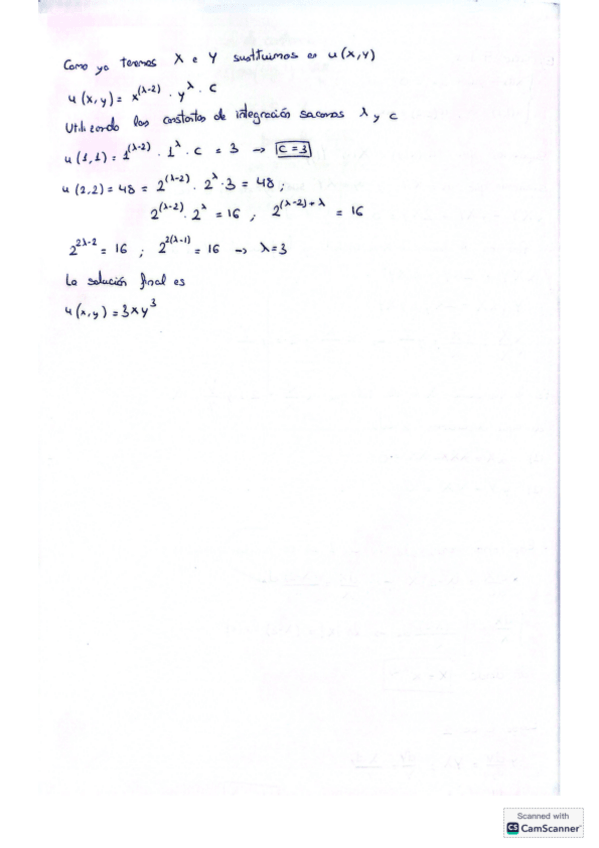 Como ya tenemos X e Y sustituimos en u(x,y)
u(x,y) = x^(λ-2) · y^λ · c
Utilizando las constantes de integración sacamos λ y c
u(1,1) = 1^(λ-2) · 1^λ · c = 3 → c = 3
u(2,2) = 48 = 2^(λ-2) · 2^λ · 3 = 48 ;
2^(λ-2) · 2^λ = 16 , 2^(λ-2)+λ = 16
2^2λ-2 = 16 ; 2^2(λ-1) = 16 → λ=3
La solución final es
u(x,y) = 3xy^3
Scanned with
CS CamScanner